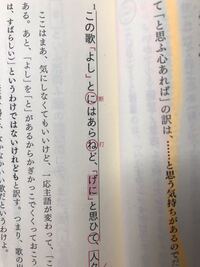 て「と思ふ心あれば」の訳は、……と思う気持ちがあるのでだ
1
この歌「よし」とにはあらねど、「げに」と思ひて、人々
断
打
ここはまあ、気にしなくてもいいけど、一応主語が変わって、「こ
ある。あと、「よし」を「と」があるからかぎかっこでくくっておこう
は、すばらしい)というわけではないけれどもと訳す。つまり、歌の出